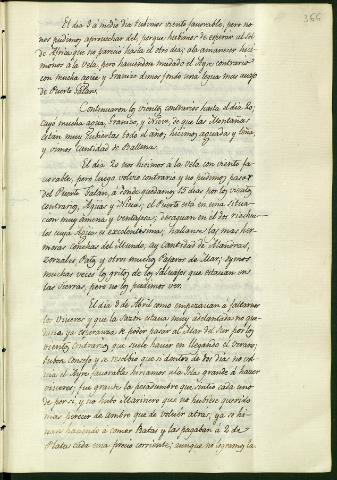 366
El dia 9 á medio dia tubimos viento favorable, pero no
nos pudimos aprovechar del, porque hubimos de esperar al Sol
de Africa que no pareció hasta el otro dia; al amanecer hici
monos á la vela, pero haviendose mudado el Ayre contrario
con mucha agua y Granizo dimos fondo una legua mas abajo
de Puerto Galan.
Continuaron los vientos contrarios hasta el dia 20;
cayo mucha agua, Granizo, y Nieve, de que las Montañas
estan muy cubiertas todo el año; hicimos aguada y leña,
y vimos cantidad de Ballena.
El dia 20 nos hicimos á la vela con viento fa-
vorable, pero luego volvió contrario y no pudimos pasar
del Puerto Galan, á donde quedamos 15 dias por los vientos
contrarios, Aguas y Nieve; el Puerto está en una situa-
cion muy amena y ventajosa; desaguan en el dos riachue-
los cuya Agua es excelentisima; hallanse las mas her-
mosas conchas del Mundo, ay cantidad de
Zorzales Patos y otros muchos Pajaros de Mar; oymos
muchas veces los gritos de los Salvajes que estavan en
las Sierras, pero no los pudimos ver.
El dia 3 de Abril como empezavan á faltarnos
los Viveres y que la Sazon estava muy adelantada no que
dava ya esperanza de poder pasar al Mar del Sur por los
vientos contrarios que suele haver en llegando el verano;
hubo Consejo y se resolvió que si dentro de dos dias no vol
via el Ayre favorable hiriamos á la Isla grande á hacer
viveres; fue grande la pesadumbre que sintio cada uno
de por si, y no hubo Marinero que no hubiese querido
mas perecer de ambre que de volver atras; ya se hi-
van haciendo á comer Ratas y las pagaban á 2 de
Platas cada una precio corriente; aunque no logramos la